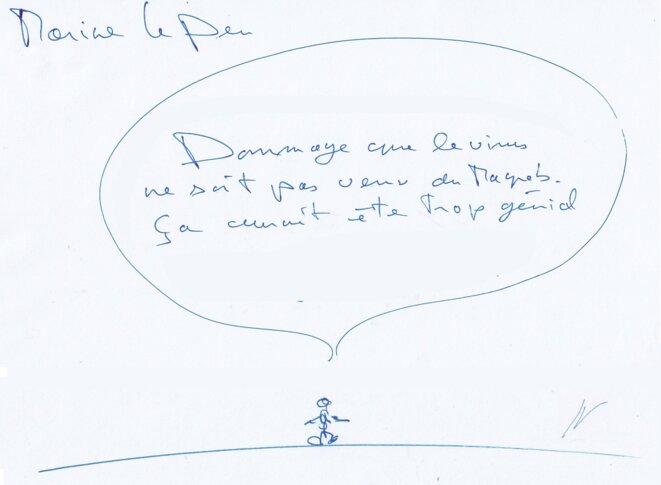 Marine Le Pen
Dommage que le virus
ne soit pas venu du Magreb.
ça aurait été trop génial